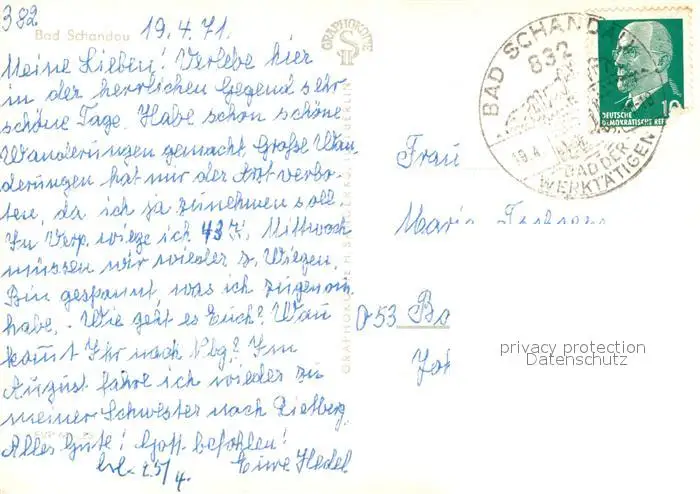 382
Bad Schandau 19.4.71.
Meine Lieben! Verlebe hier
in der herrlichen Gegend sehr
schöne Tage. Habe schon schöne
Wanderungen gemacht. Große Wan
derungen hat mir der Arzt verbo
ten, da ich ja zunehmen soll
In Verp. wiege ich 43 Mittwoch
müssen wir wieder z. Wiegen.
Bin gespannt, was ich zugenom
habe. Wie geht es Euch? Wan
kommt Ihr nach Nbg? Im
August fahre ich wieder zu
meiner Schwester nach Rietberg.
Alles Gute! Gott befohlen!
25/4. Eure Hedel
GRAPHOKOPIE
Frau
Maria
053
BAD SCHANDAU
832
19.4
BAD DER
WERKTÄTIGEN
10
DEUTSCHE
DEMOKRATISCHE REP
privacy protection
Datenschutz